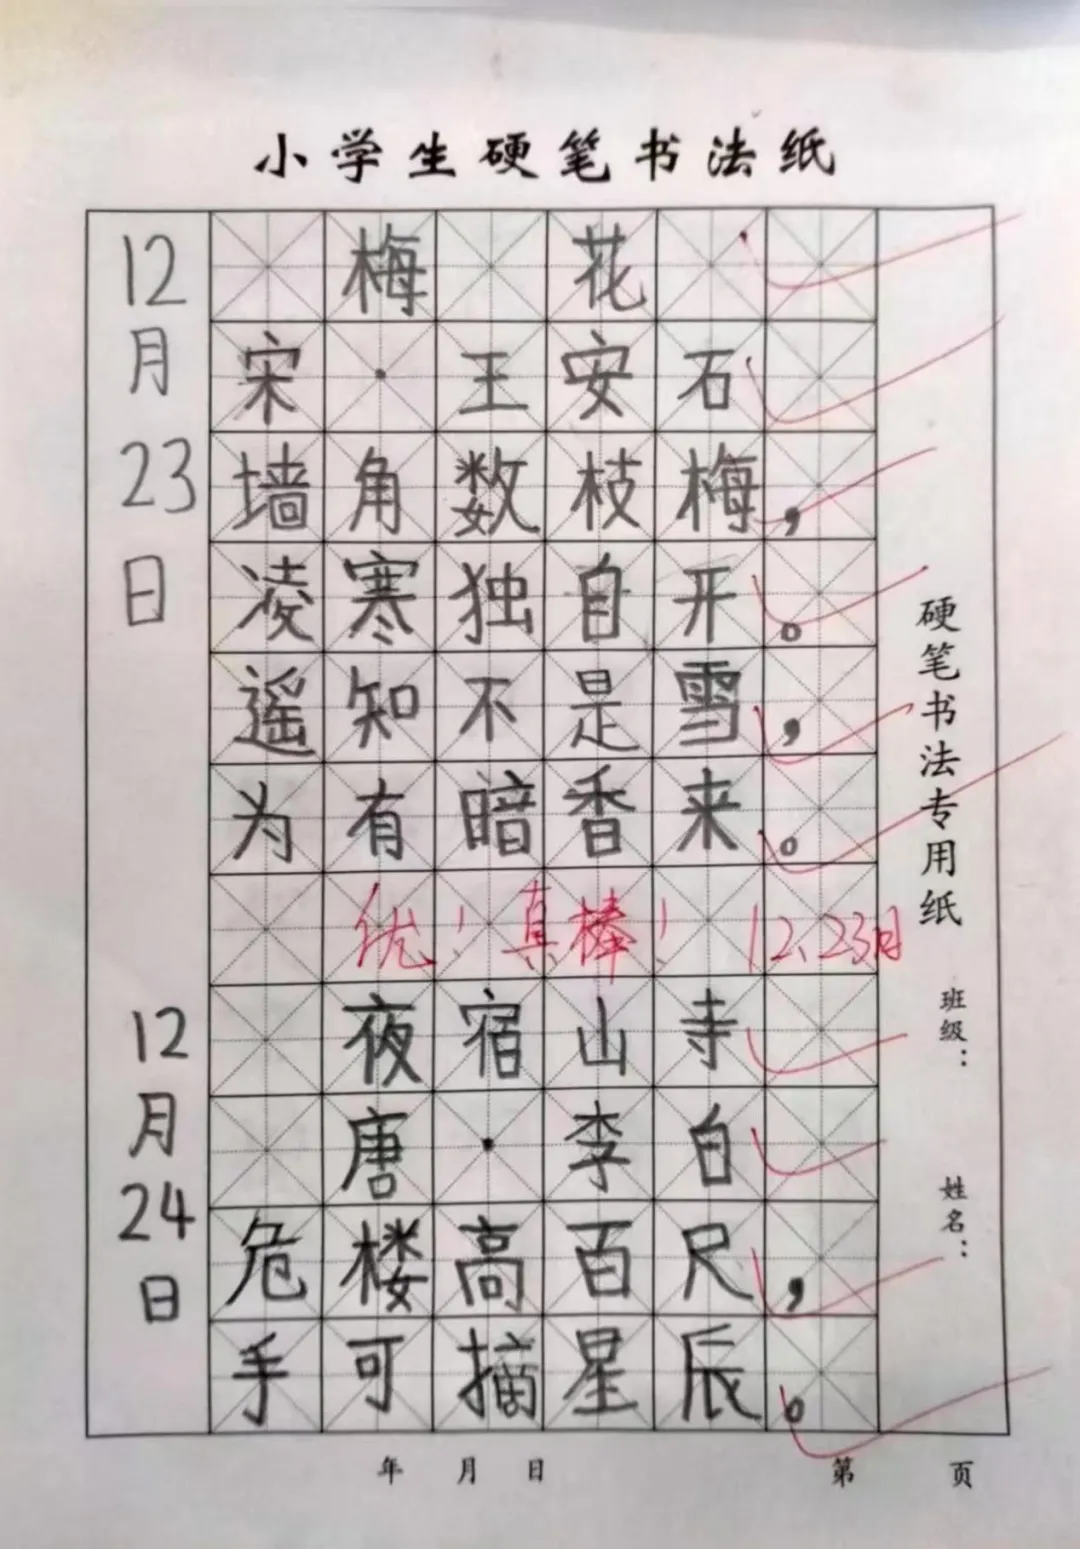 小学生硬笔书法纸
12月23日
梅花
宋·王安石
墙角数枝梅，
凌寒独自开。
遥知不是雪，
为有暗香来。
优！真棒！12.23日
12月24日
夜宿山寺
唐·李白
危楼高百尺，
手可摘星辰。
硬笔书法专用纸
班级：
姓名：
年 月 日
第 页